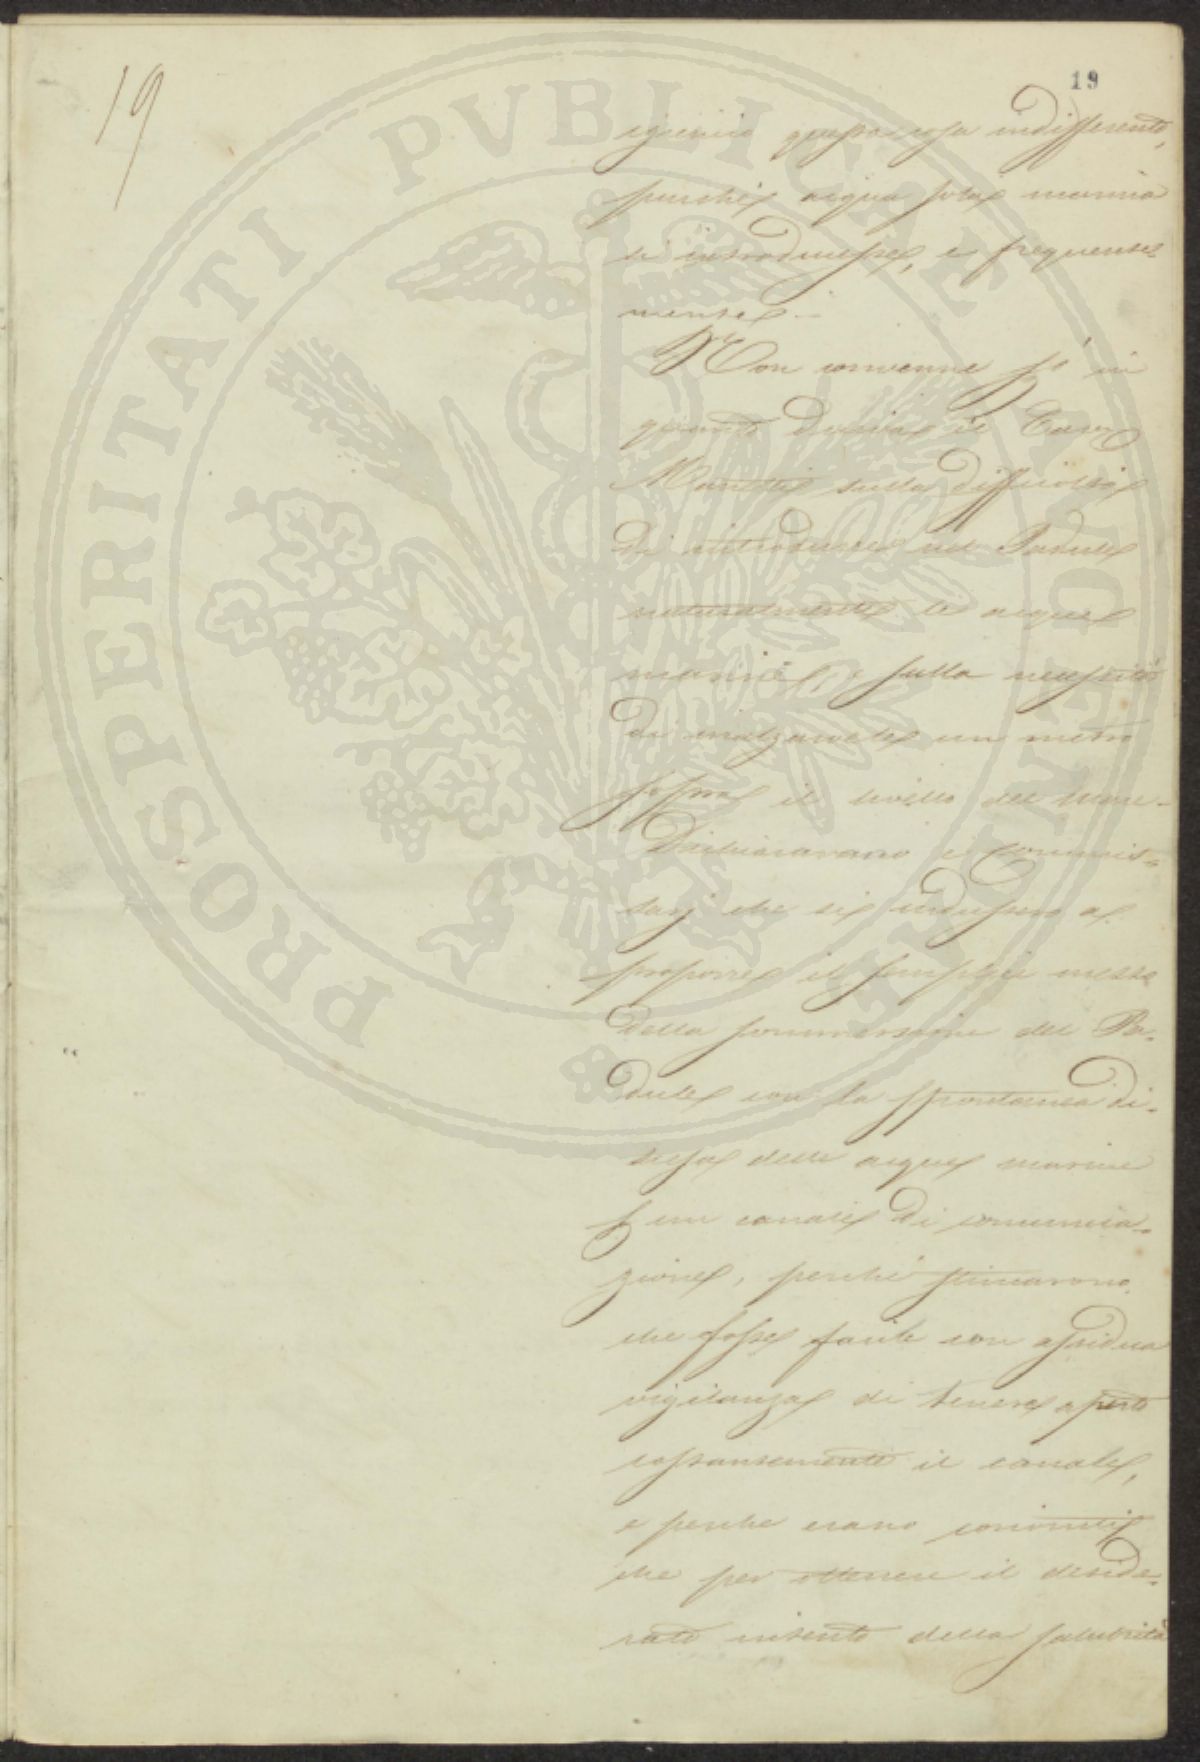 19
19
igienico questa cosa indifferente,
purché acqua sola marina
si introducesse, e frequente
mente -
Non convenne poi in
quanto diceva il Cav.
Manetti sulla difficoltà
di introdurre nel Padule
naturalmente le acque
marine, e sulla necessità
di inalzarle un metro
sopra il livello del mare -
Dichiararano i Commis=
sarj che si indussero a
proporre il semplice mezzo
della sommersione del Pa=
dule con la spontanea di=
scesa delle acque marine
p un canale di comunica=
zione, perché stimarono
che fosse facile con assidua
vigilanza di tenere aperto
costantemente il canale,
e perché erano convinti
che per ottenere il deside=
rato intento della salubrità
PROSPERITATI PVBLICAE AVGENDAE